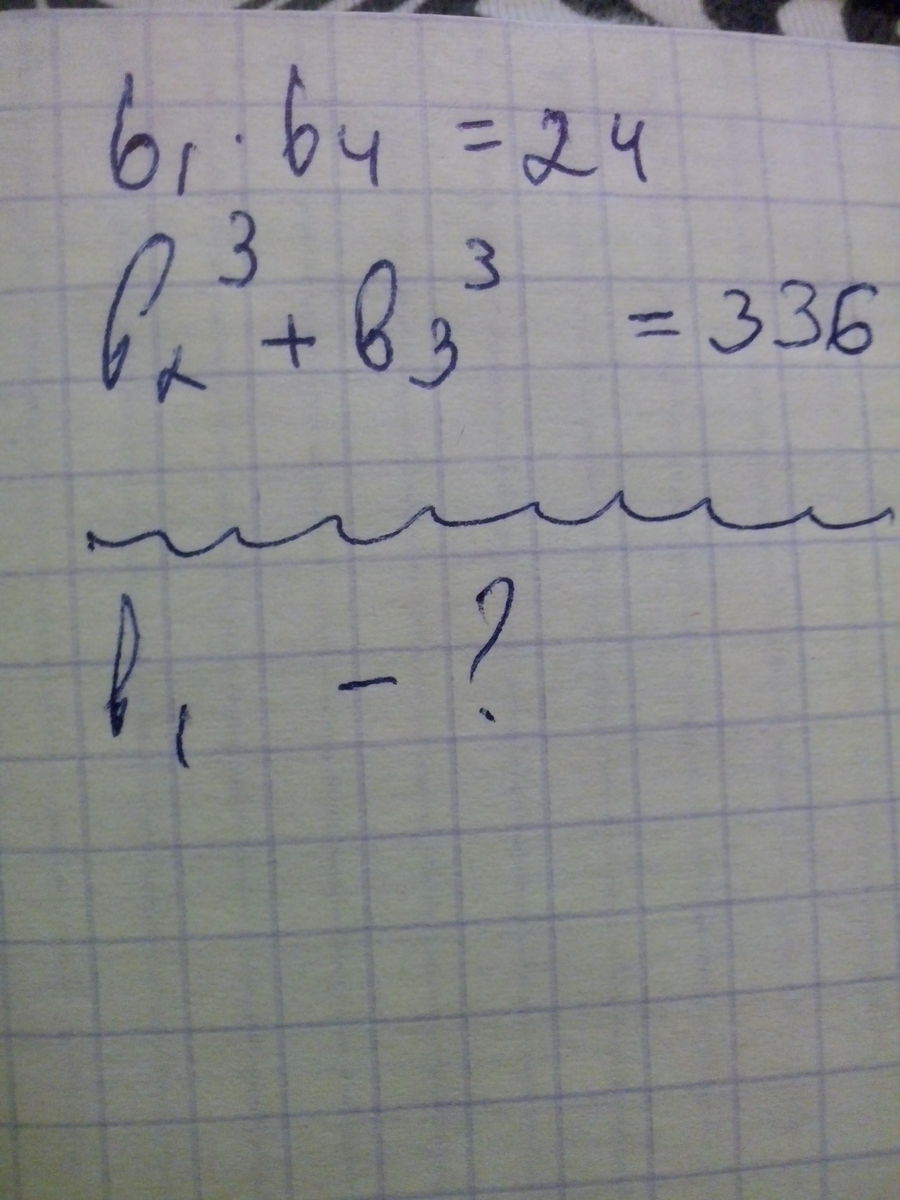 b₁ · b₄ = 24
b₂³ + b₃³ = 336
b₁ - ?